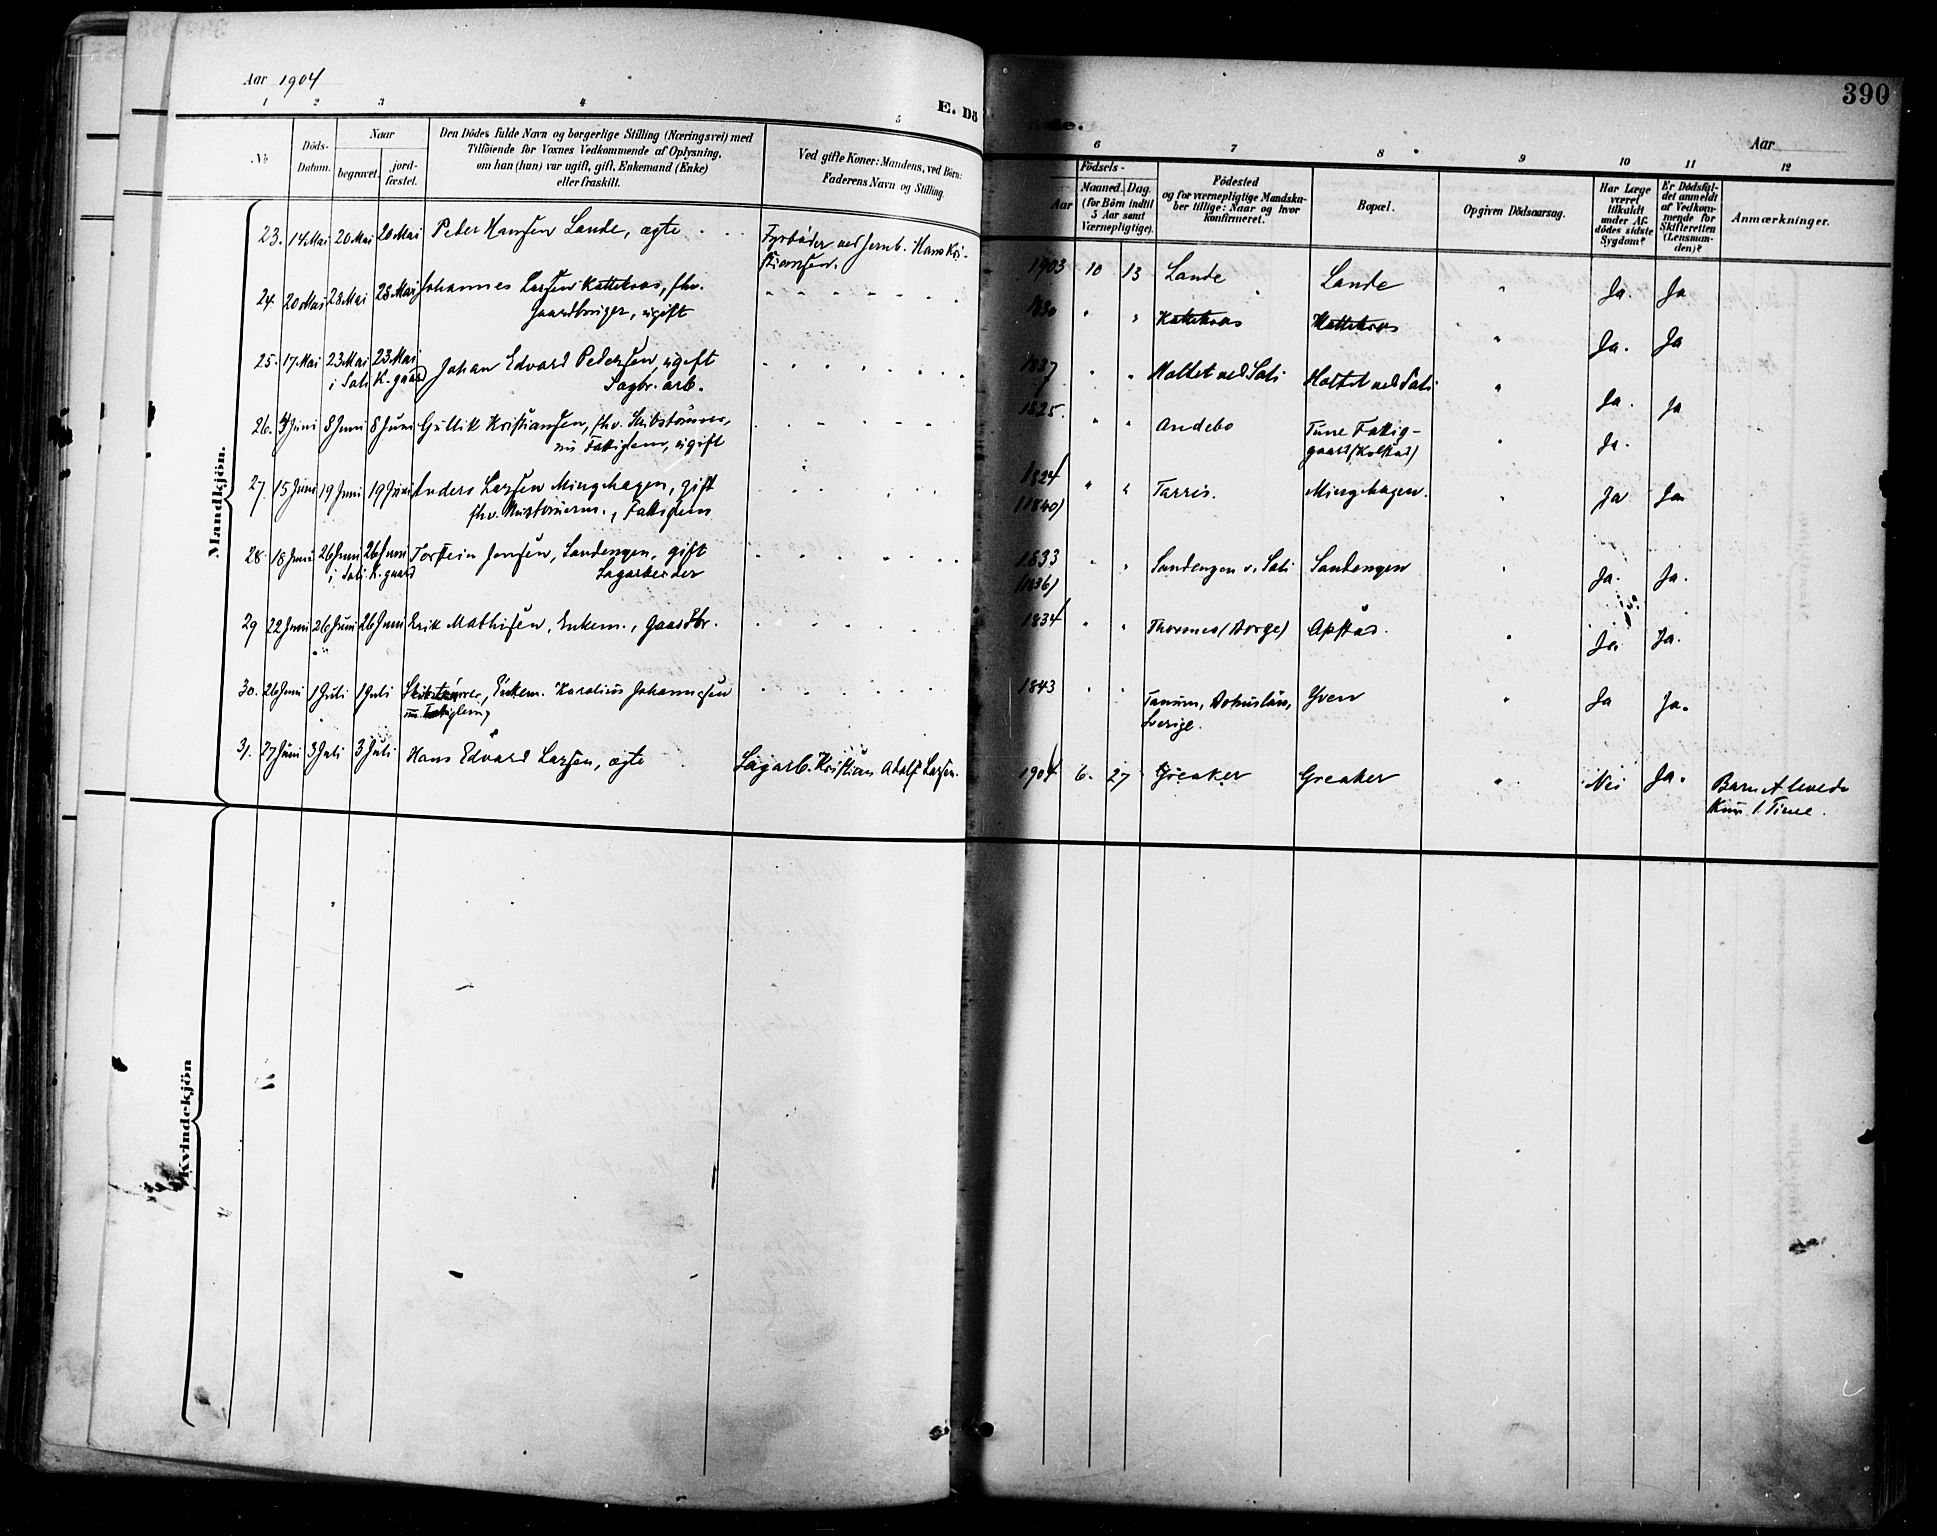 Aar 1904
E. Dö
de.
Aar
390
1 2 3 4 5
6 7 8 9 10 11 12
No
Döds-Datum.
Naar
begravet.
jord-fæstet.
Den Dödes fulde Navn og borgerlige Stilling (Næringsvei) med
Tilföiende for Voxnes Vedkommende af Oplysning,
om han (hun) var ugift, gift, Enkemand (Enke)
eller fraskilt.
Ved gifte Koner: Mandens, ved Börn:
Faderens Navn og Stilling.
Födsels-
Aar
Maaned. Dag.
(for Börn indtil
5 Aar samt
Værnepligtige).
Födested
og for værnepligtige Mandska-
ber tillige: Naar og hvor
konfirmeret.
Bopæl.
Opgiven Dödsaarsag.
Har Læge
været
tilkaldt
under Af-
dödes sidste
Sygdom?
Er Dödsfal-
det anmeldt
af Vedkom-
mende for
Skifteretten
(Lensman-
den)?
Anmærkninger.
Mandkjön.
23. 14 Mai 20 Mai 20 Mai Peder Hansen Lande, ægte Fyrböder ved Jernb. Hans Kri-
stiansen.
1903 10 13 Lande Lande " Ja. Ja
24. 20 Mai 28 Mai 28 Mai Johannes Larsen Kattekras, fhv.
Gaardbruger, ugift
1830 " " Kattekras Kattekras " Ja. Ja
25. 17 Mai 23 Mai 23 Mai Johan Edvard Pedersen, ugift
i Soli K. gaard Sagbr. arb.
1837 " " Holtet ved Soli Holtet ved Soli " Ja. Ja
26. 4 Juni 8 Juni 8 Juni Gullik Kristiansen, fhv. Skibstömmer,
nu Fattiglem, ugift
1825. " " Andebo Tune Fattig-
gaard (Kolstad) " Ja.
27. 15 Juni 19 Juni 19 Juni Anders Larsen Mingehagen, gift
fhv. , Fattiglem
1824 (1840) " " Tarris. Mingehagen. " Ja Ja
28. 18 Juni 26 Juni 26 Juni Torstein Jensen, Sandengen, gift
i Soli K. gaard Sagarbeider
1833 (1836) " " Sandengen v. Soli Sandengen " Ja. Ja.
29 22 Juni 26 Juni 26 Juni Erik Mathisen, Enkem., Gaardbr.
1834 " " Thorsnes (Borge) Opstad. " Ja. Ja.
30. 26 Juni 1 Juli 1 Juli Skibstömrer, Enkem. Karolius Johannesen
nu Fattiglem
1843 " " Tanum, Bohuslän,
Sverige. Yven " Ja Ja.
31. 27 Juni 3 Juli 3 Juli Hans Edvard Larsen, ægte Sagarb. Kristian Adolf Larsen.
1904 6. 27 Greaker Greaker " Nei Ja. Barnet levede
kun 1 Time.
Kvindekjön